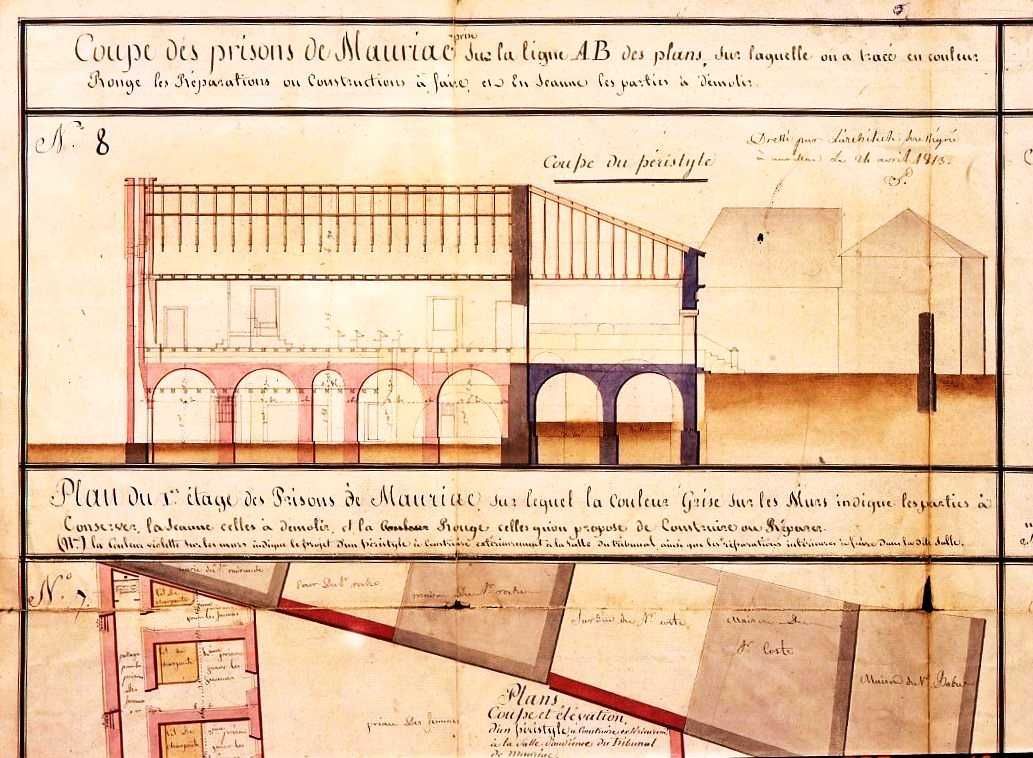 Coupe des prisons de Mauriac prise sur la ligne AB des plans, sur laquelle on a tracé en couleur
Rouge les Réparations ou Constructions à faire, et En Jeaune les parties à démolir.
N.º 8
Coupe du péristyle
Dressé par L'architecte
à Le 24 avril 1813.
Plan du 1.er étage des Prisons de Mauriac, sur lequel la Couleur Grise sur les Murs indique les parties à
Conserver, la Jeaune celles à démolir, et la Couleur Rouge celles qu'on propose de Construire ou Réparer.
(Nta) la Couleur violette sur les murs indique le projet d'un péristyle à Construire extérieurement à la Salle du tribunal ainsi que les réparations intérieures à faire dans la dite Salle.
N.º 7.
Cour du Sr. roche
maison du Sr. roche
Jardin du Sr. coste
Maison du
Sr. Coste
Maison du Sr.
lit de
charpente
lit de
charpente
lit de
charpente
préau des femmes
Plans
Coupe et élévation,
d'un péristyle à Construire extérieurem.t
à la Salle d'audience du Tribunal
de Mauriac